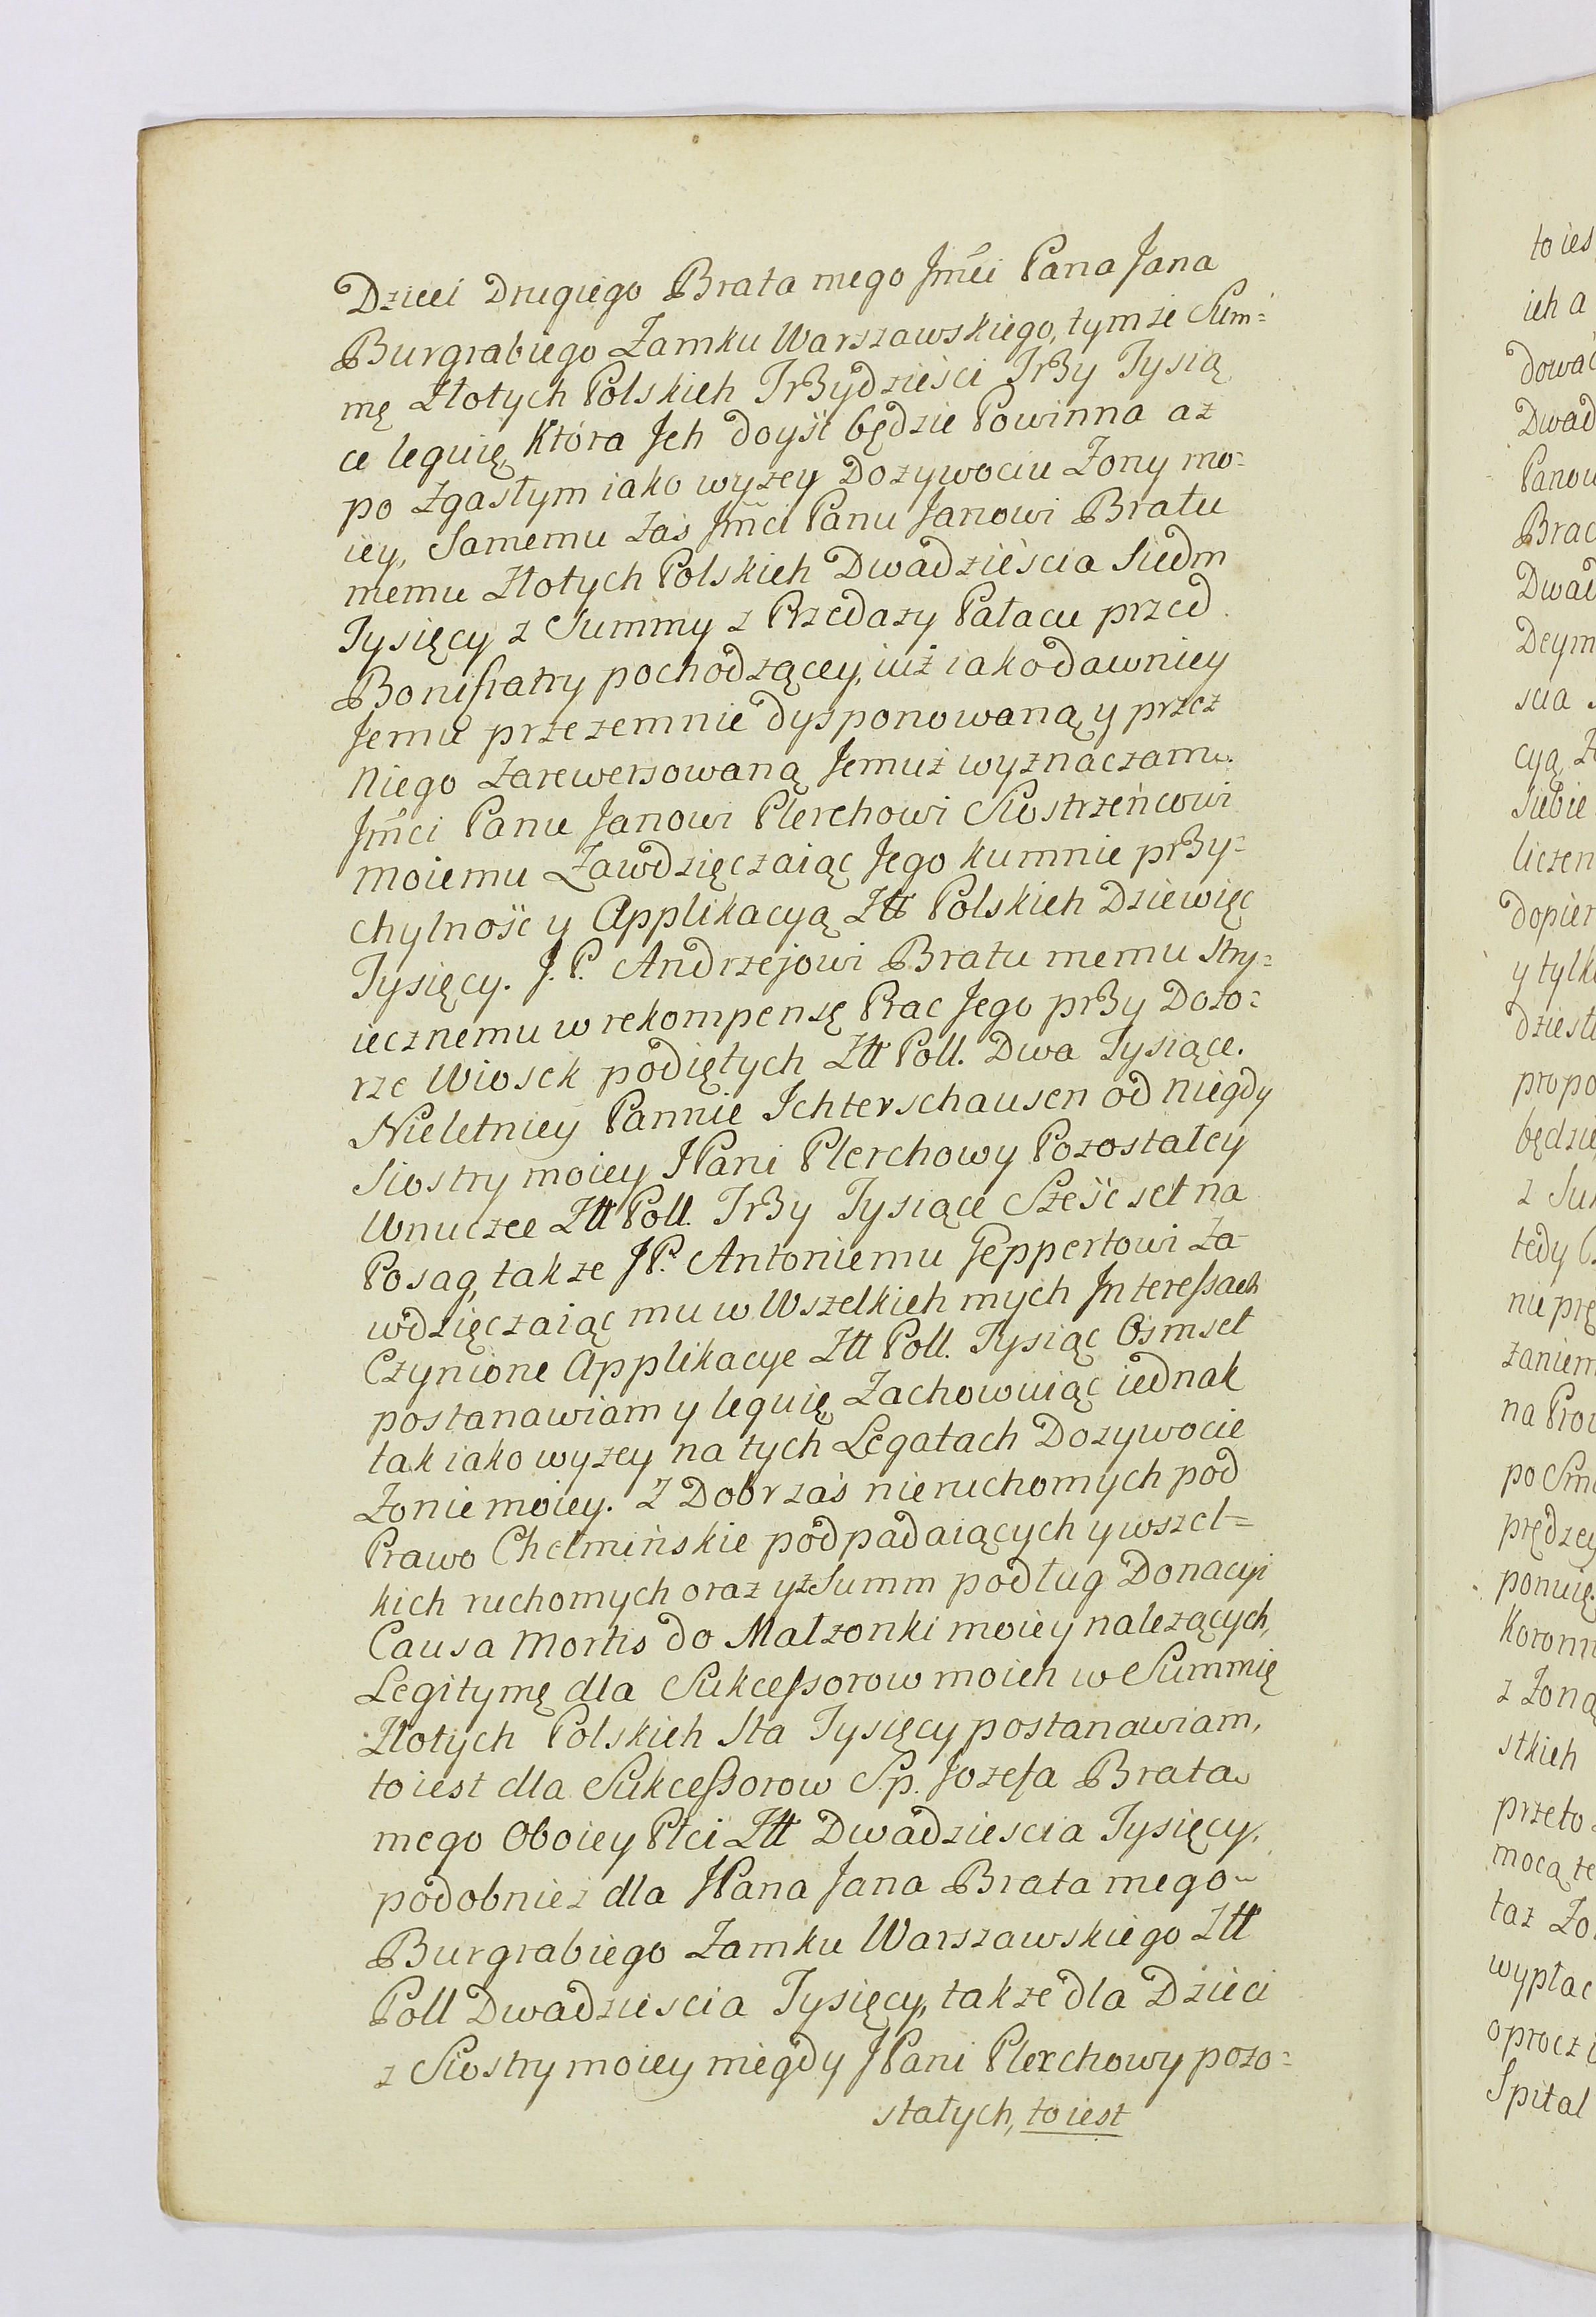 Dzieci Drugiego Brata mego Jmći Pana Jana
Burgrabiego Zamku Warszawskiego, tymże Sum=
mę Złotych Polskich Trzydzieści Trzy Tysią
ce leguię, Która Ich doyść będzie Powinna aż
po zgasłym iako wyżey Dożywociu Żony mo=
iey, Samemu zaś Jmći Panu Janowi Bratu
memu Złotych Polskich Dwadzieścia Siedm
Tysięcy z Summy z Przedaży Pałacu przed
Bonifratry pochodzącey, iuż iako dawniey
Jemu przezemnie dysponowaną y przez
Niego zarewersowaną Jemuż wyznaczam.
Jmći Panu Janowi Plerchowi Siostrzeńcowi
moiemu Zawdzięczaiąc Jego kumnie przy=
chylność y Applikacyą Ztt Polskich Dziewięć
Tysięcy. J.P. Andrzejowi Bratu memu Stry=
iecznemu w rekompensę Prac Jego przy Dozo=
rze Wiosek podiętych Ztt Poll. Dwa Tysiące.
Nieletniey Pannie Ichterschausen od niegdy
Siostry moiey JPani Plerchowy Pozostałey
Wnuczce Ztt Poll. Trzy Tysiące Sześć set na
Posag, także JP. Antoniemu Geppertowi Za-
wdzięczaiąc mu w Wszelkich mych Interessach
Czynione Applikacye Ztt Poll. Tysiąc Ośmset
postanawiam y leguię, Zachowuiąc iednak
tak iako wyżey na tych Legatach Dożywocie
Żonie moiey. Z Dobr zaś nieruchomych pod
Prawo Chełmińskie podpadaiących y wszel=
kich ruchomych oraz y z Summ podług Donacyi
Causa Mortis do Małżonki moiey należących,
Legitymę dla Sukcessorow moich w Summię
Złotych Polskich Sta Tysięcy postanawiam,
to iest dla Sukcessorow S.p. Jozefa Brata
mego Oboiey Płci Ztt Dwadziescia Tysięcy,
podobnież dla JPana Jana Brata mego
Burgrabiego Zamku Warszawskiego Ztt
Poll Dwadziescia Tysięcy, także dla Dzieci
z Siostry moiey niegdy JPani Plerchowy pozo=
stałych, to iest
to ies
ich a
dować
Dwad
Panow
Brac
Dwad
Deym
scia
cyą
siebie
liczen
dopier
y tylk
dziest
propo
będzie
z Su
tedy
nie prę
zaniem
na Pro
po Smi
prędzey
ponuię.
Koronn
z Żoną
stkich
przeto
mocą te
taż Żo
wypłac
oprocz
Spital